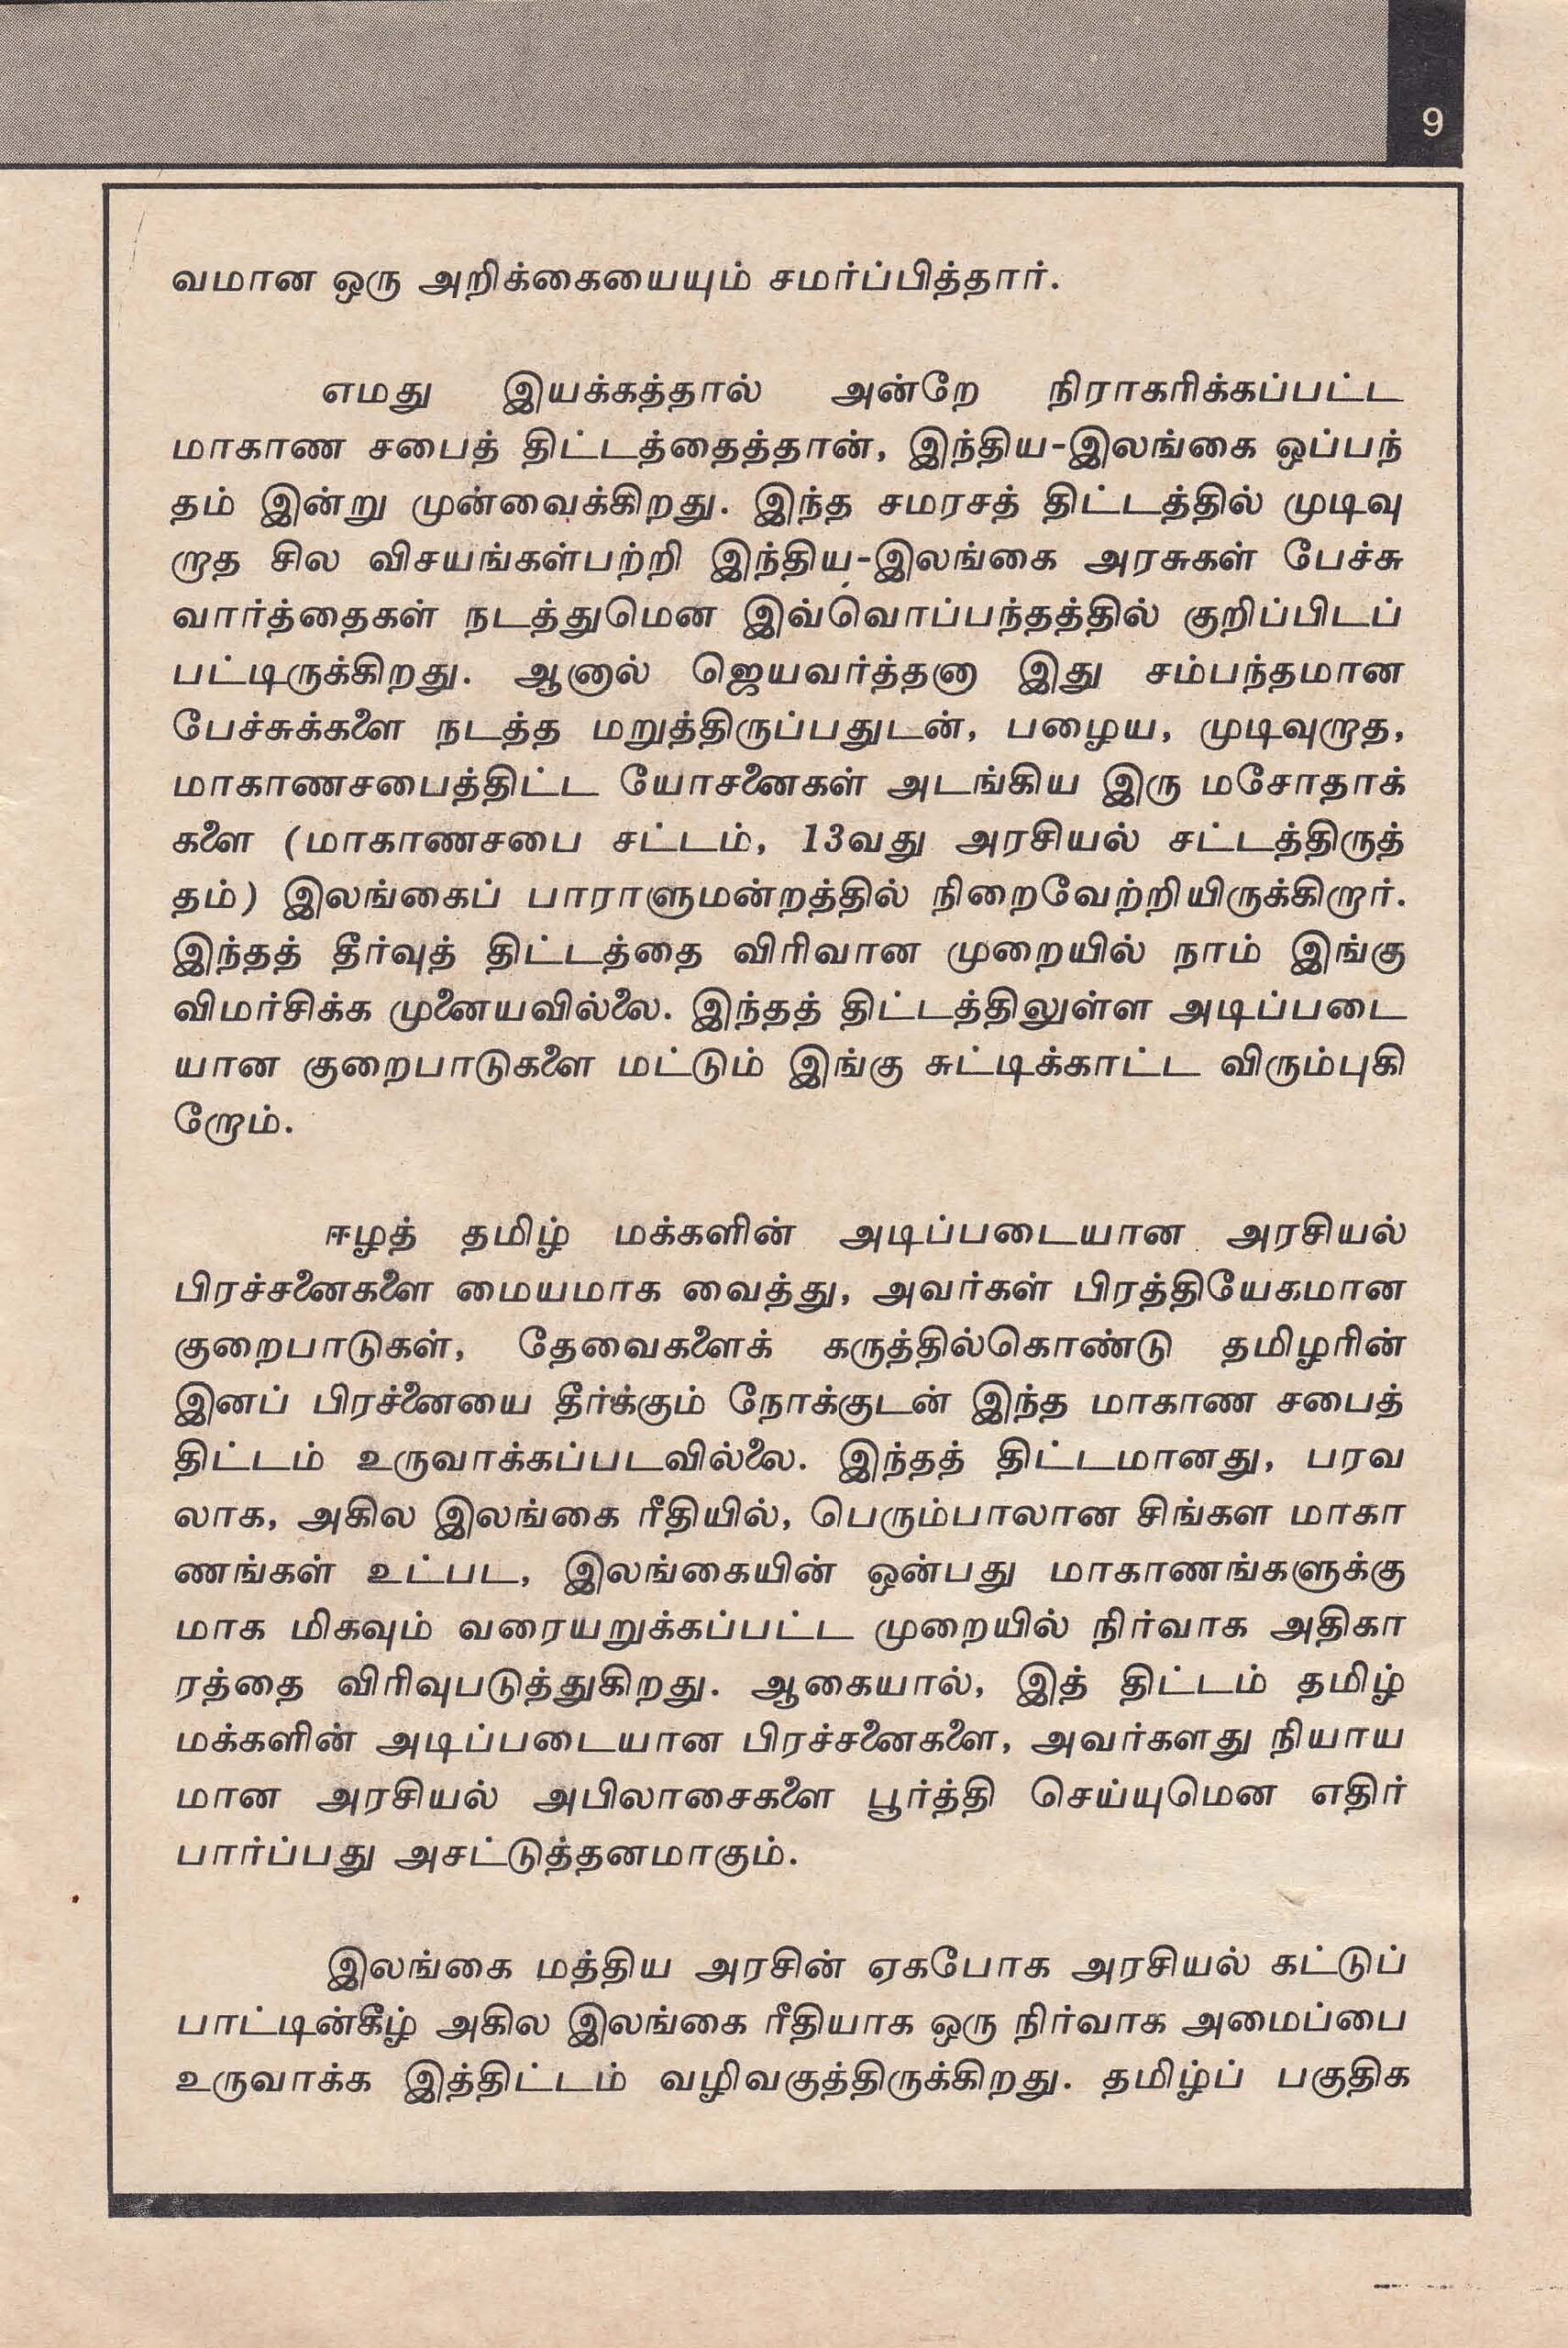 9
வமான ஒரு அறிக்கையையும் சமர்ப்பித்தார்.
எமது இயக்கத்தால் அன்றே நிராகரிக்கப்பட்ட
மாகாண சபைத் திட்டத்தைத்தான், இந்திய-இலங்கை ஒப்பந்
தம் இன்று முன்வைக்கிறது. இந்த சமரசத் திட்டத்தில் முடிவு
றாத சில விசயங்கள்பற்றி இந்திய-இலங்கை அரசுகள் பேச்சு
வார்த்தைகள் நடத்துமென இவ்வொப்பந்தத்தில் குறிப்பிடப்
பட்டிருக்கிறது. ஆனால் ஜெயவர்த்தனா இது சம்பந்தமான
பேச்சுக்களை நடத்த மறுத்திருப்பதுடன், பழைய, முடிவுறாத,
மாகாணசபைத்திட்ட யோசனைகள் அடங்கிய இரு மசோதாக்
களை (மாகாணசபை சட்டம், 13வது அரசியல் சட்டத்திருத்
தம்) இலங்கைப் பாராளுமன்றத்தில் நிறைவேற்றியிருக்கிறார்.
இந்தத் தீர்வுத் திட்டத்தை விரிவான முறையில் நாம் இங்கு
விமர்சிக்க முனையவில்லை. இந்தத் திட்டத்திலுள்ள அடிப்படை
யான குறைபாடுகளை மட்டும் இங்கு சுட்டிக்காட்ட விரும்புகி
றோம்.
ஈழத் தமிழ் மக்களின் அடிப்படையான அரசியல்
பிரச்சனைகளை மையமாக வைத்து, அவர்கள் பிரத்தியேகமான
குறைபாடுகள், தேவைகளைக் கருத்தில்கொண்டு தமிழரின்
இனப் பிரச்னையை தீர்க்கும் நோக்குடன் இந்த மாகாண சபைத்
திட்டம் உருவாக்கப்படவில்லை. இந்தத் திட்டமானது, பரவ
லாக, அகில இலங்கை ரீதியில், பெரும்பாலான சிங்கள மாகா
ணங்கள் உட்பட, இலங்கையின் ஒன்பது மாகாணங்களுக்கு
மாக மிகவும் வரையறுக்கப்பட்ட முறையில் நிர்வாக அதிகா
ரத்தை விரிவுபடுத்துகிறது. ஆகையால், இத் திட்டம் தமிழ்
மக்களின் அடிப்படையான பிரச்சனைகளை, அவர்களது நியாய
மான அரசியல் அபிலாசைகளை பூர்த்தி செய்யுமென எதிர்
பார்ப்பது அசட்டுத்தனமாகும்.
இலங்கை மத்திய அரசின் ஏகபோக அரசியல் கட்டுப்
பாட்டின்கீழ் அகில இலங்கை ரீதியாக ஒரு நிர்வாக அமைப்பை
உருவாக்க இத்திட்டம் வழிவகுத்திருக்கிறது. தமிழ்ப் பகுதிக